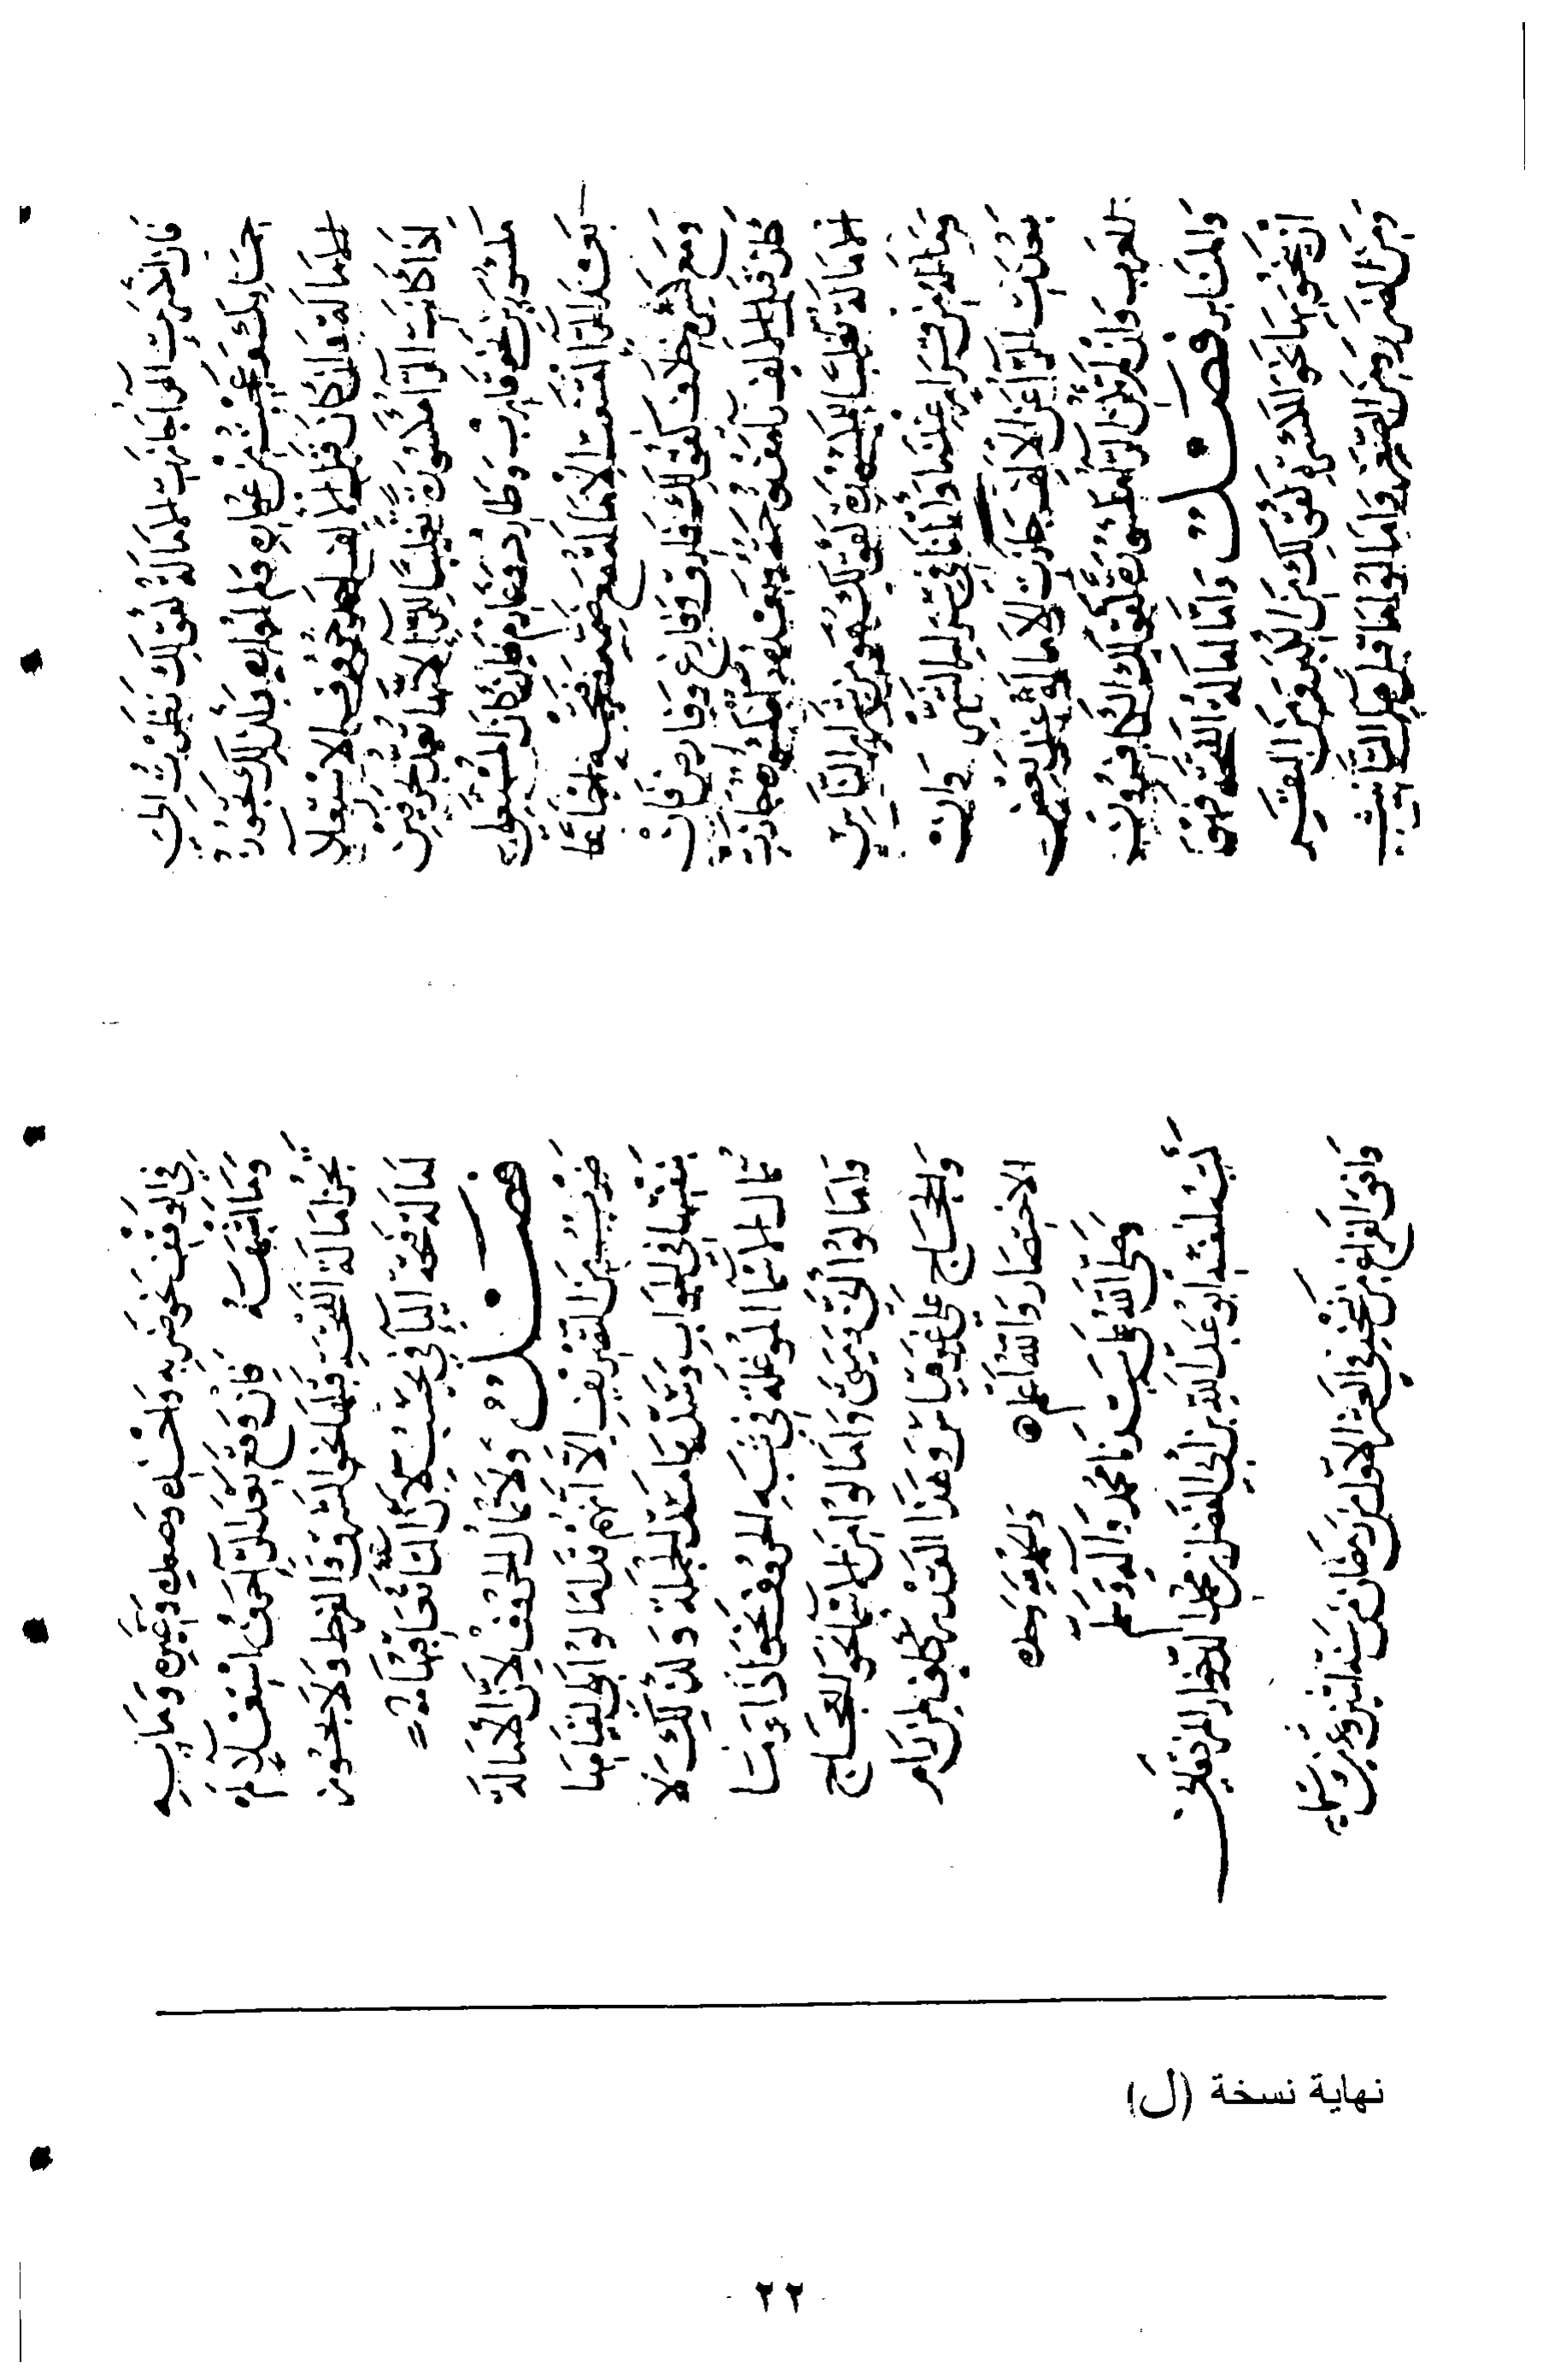 فان انكسرت الرا جازت الامالة كقولك نظرت الى
حمارك وعجبت من وكذلك تجوز
الامالة وان كان قبل الالف احد حروف الاستعلا
اذا كانت الرا مكسورة تغليبا للرا لانها تعد بحرفين
مكسورين نحو قارب وطارد وغارم فان كان المستعلي
بعد الرا امتنعت الامالة مع ضمته وفتحته اجماعا
ومع كسره خلاف كقولك فارق وفارغ وفارض فان
كان قبل الالف را مفتوحة وبعدها مكسورة جازت
الامالة تغليبا للمكسورة كقولك هو من شرار الناس
قرار علينا شرار الناس وان
بعدت الرا عن الالف جازت الامالة على بعض
العرب وان لم تكن الرا مكسورة كقولك الكافرون
والمنابر فصل واما امالة الفتحة فهو
ان ينحى بها نحو الكسرة كقولك من الكبر ومن البقر
ومن الضرر ومن الصغر واما قبل هاء التانيث
في الوقف نحو ضربه وما
وما اشبهه فان وقع بعد الرا حرف استعلا لم
تجز امالة الفتحة قبلها نحو الشرق والفرط ولا يجوز
امالة فتحة اليا في يحسب لان التا تعاقبها
فصل ولا تمال الحروف لان الامالة
ضرب من التصريف الا انهم قد امالوا بلى لقيامها
بنفسها في الجواب وسدها مسد الجملة ولذلك لا
تمال الاسما الموغلة في شبه الحروف نحو اذا وما
وامالوا انى ومتى وامالوا من الاسما نحو العجاج
والحجاج على غير قياس وهذا القدر كاف لمن رام
الاختصار والله اعلم والحمد لله وحده
وصلى الله على سيدنا محمد واله وسلم
كتبه لنفسه ابو عبد الله بن ابي الفضل بن محمد
وافق الفراغ من نسخه في العشر الاول من رمضان من سنة اثنتين وعشرين وستمايه
نهاية نسخة (ل)
٢٢